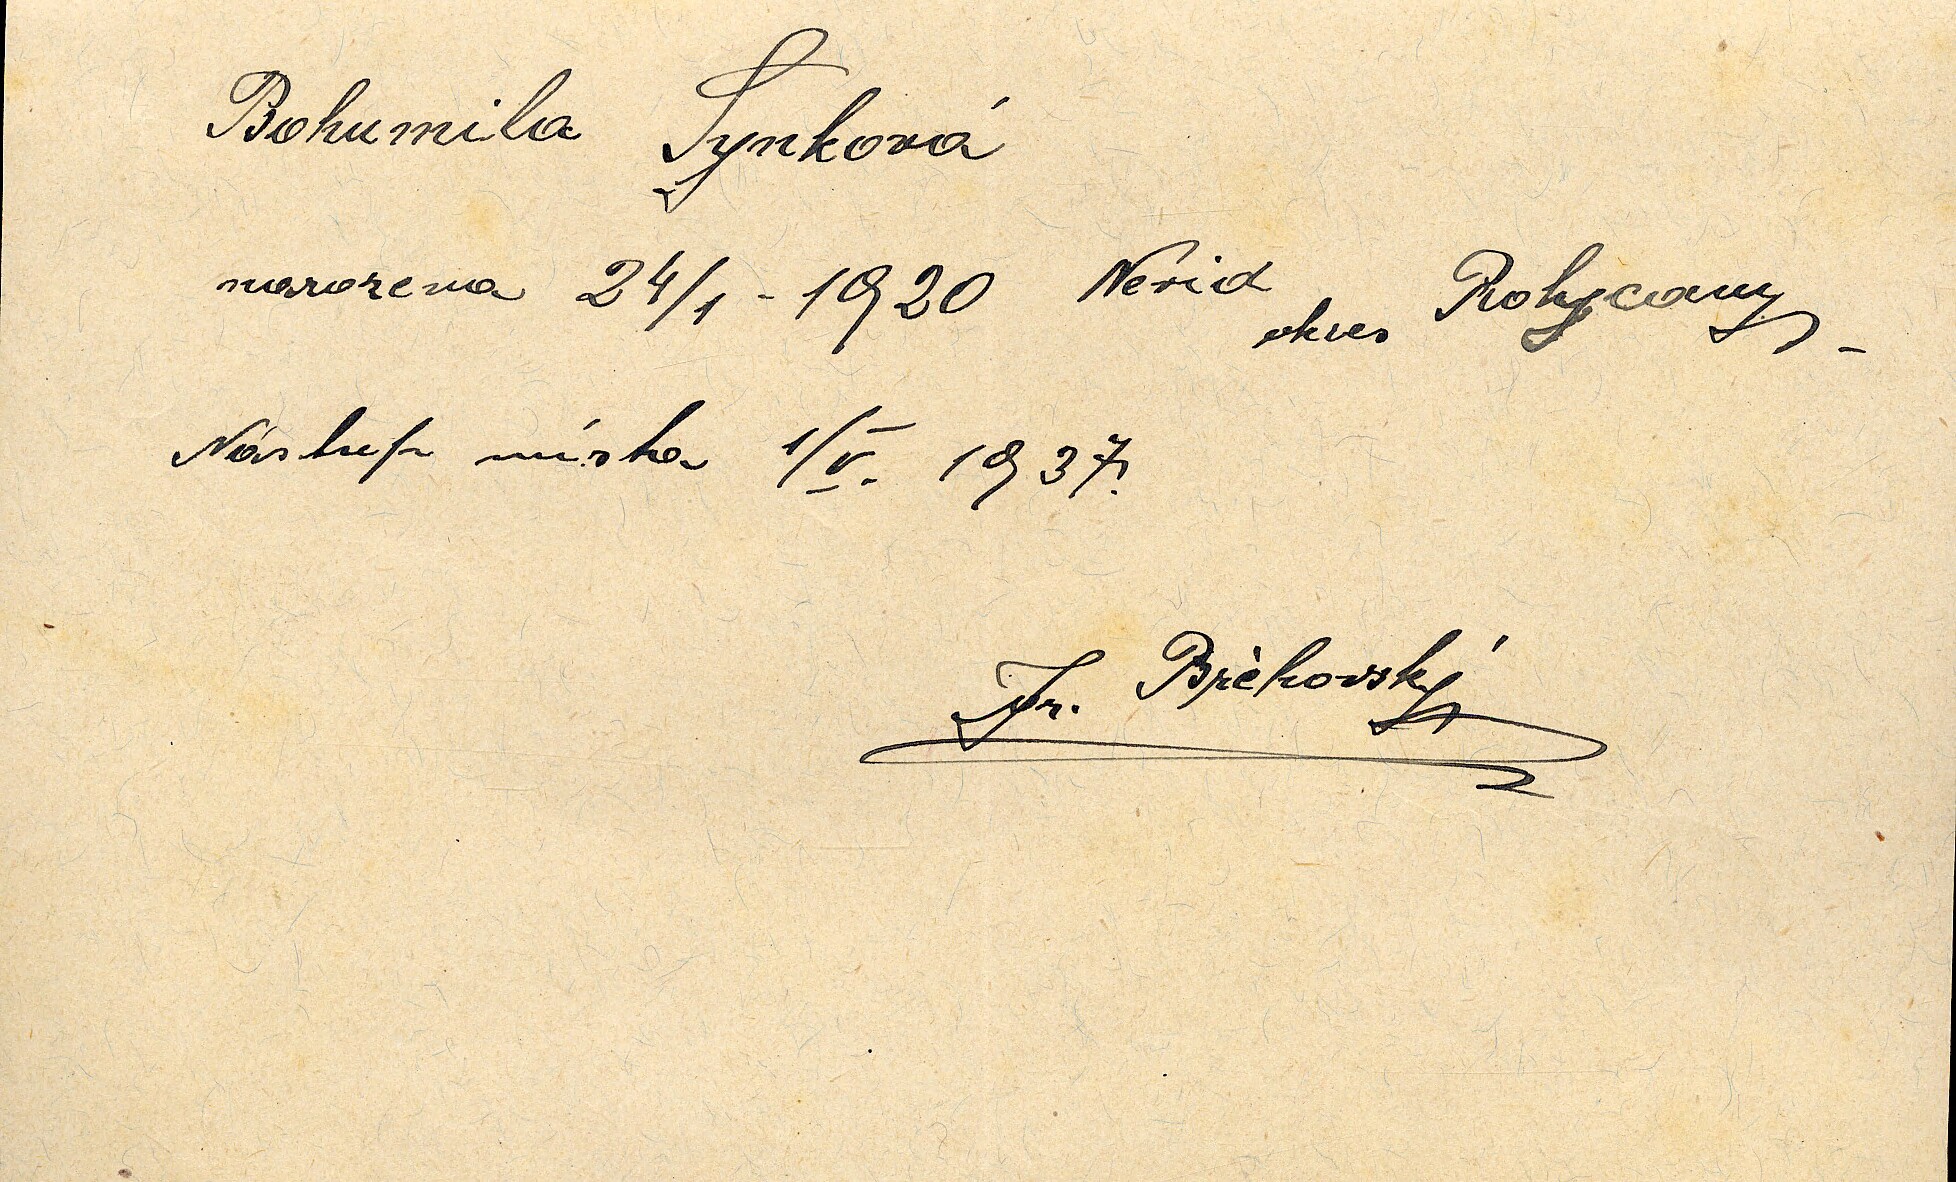 Bohumila Synková
narozena 24/1 - 1920 Nevid okres Rokycany -
Nástup místa 1/V. 1937.
Fr. Břehovský